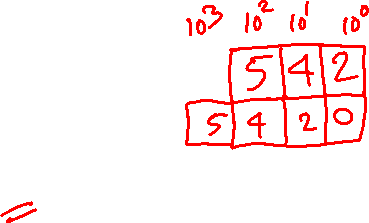 10³ 10² 10¹ 10⁰
5 4 2
5 4 2 0
=